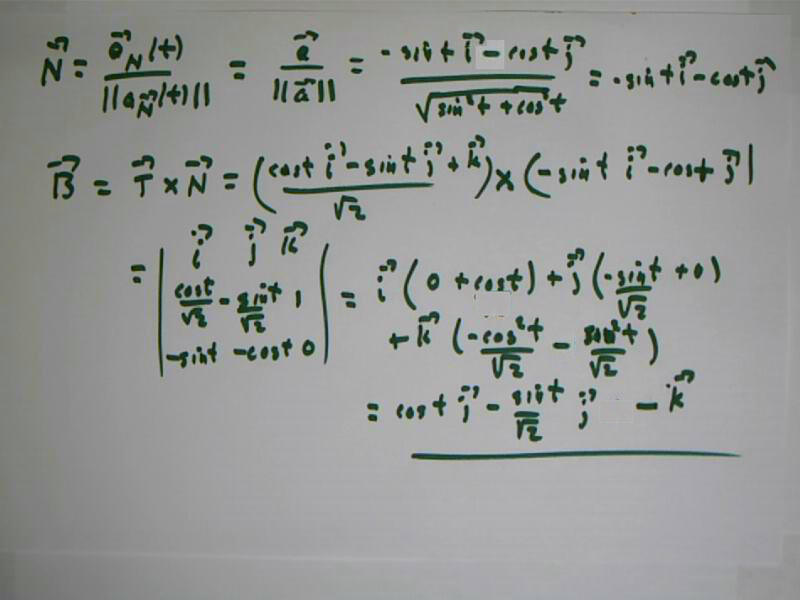 N⃗ = a⃗_N(t) / ||a_N⃗(t)|| = a⃗ / ||a⃗|| = (-sint i⃗ - cost j⃗) / √(sin²t + cos²t) = -sint i⃗ - cost j⃗
B⃗ = T⃗ × N⃗ = ((cost i⃗ - sint j⃗ + k⃗) / √2) × (-sint i⃗ - cost j⃗)
= | i⃗ j⃗ k⃗ | = i⃗ (0 + cost) + j⃗ (-sint/√2 + 0)
cost/√2 -sint/√2 1
+ k⃗ (-cos²t/√2 - sin²t/√2)
-sint -cost 0
= cost i⃗ - sint/√2 j⃗ - k⃗